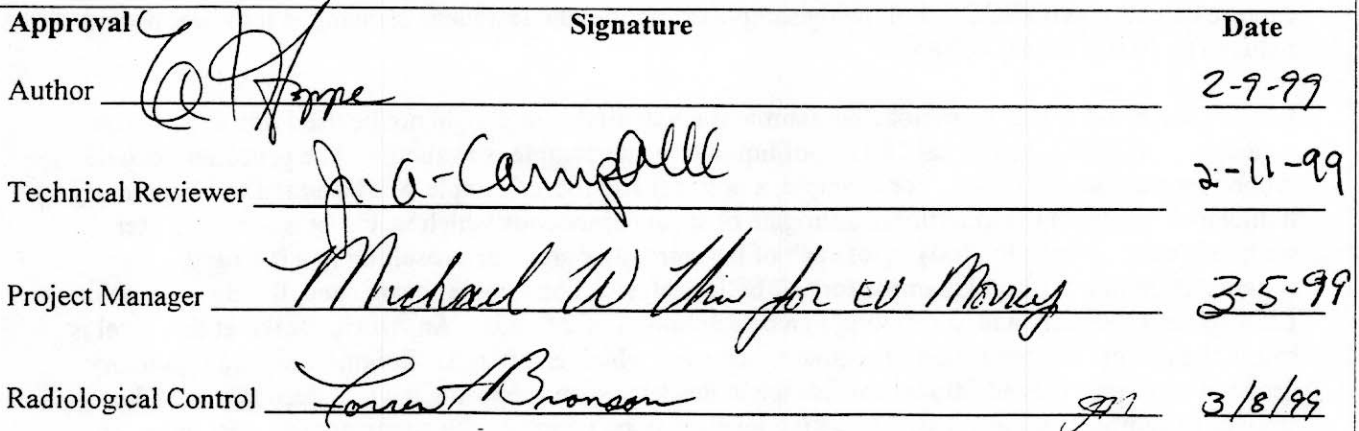 Approval Signature Date
Author E P Hoppe 2-9-99
Technical Reviewer J. A. Campbell 2-11-99
Project Manager Michael W for EV Morrey 3-5-99
Radiological Control Bronson 3/8/99